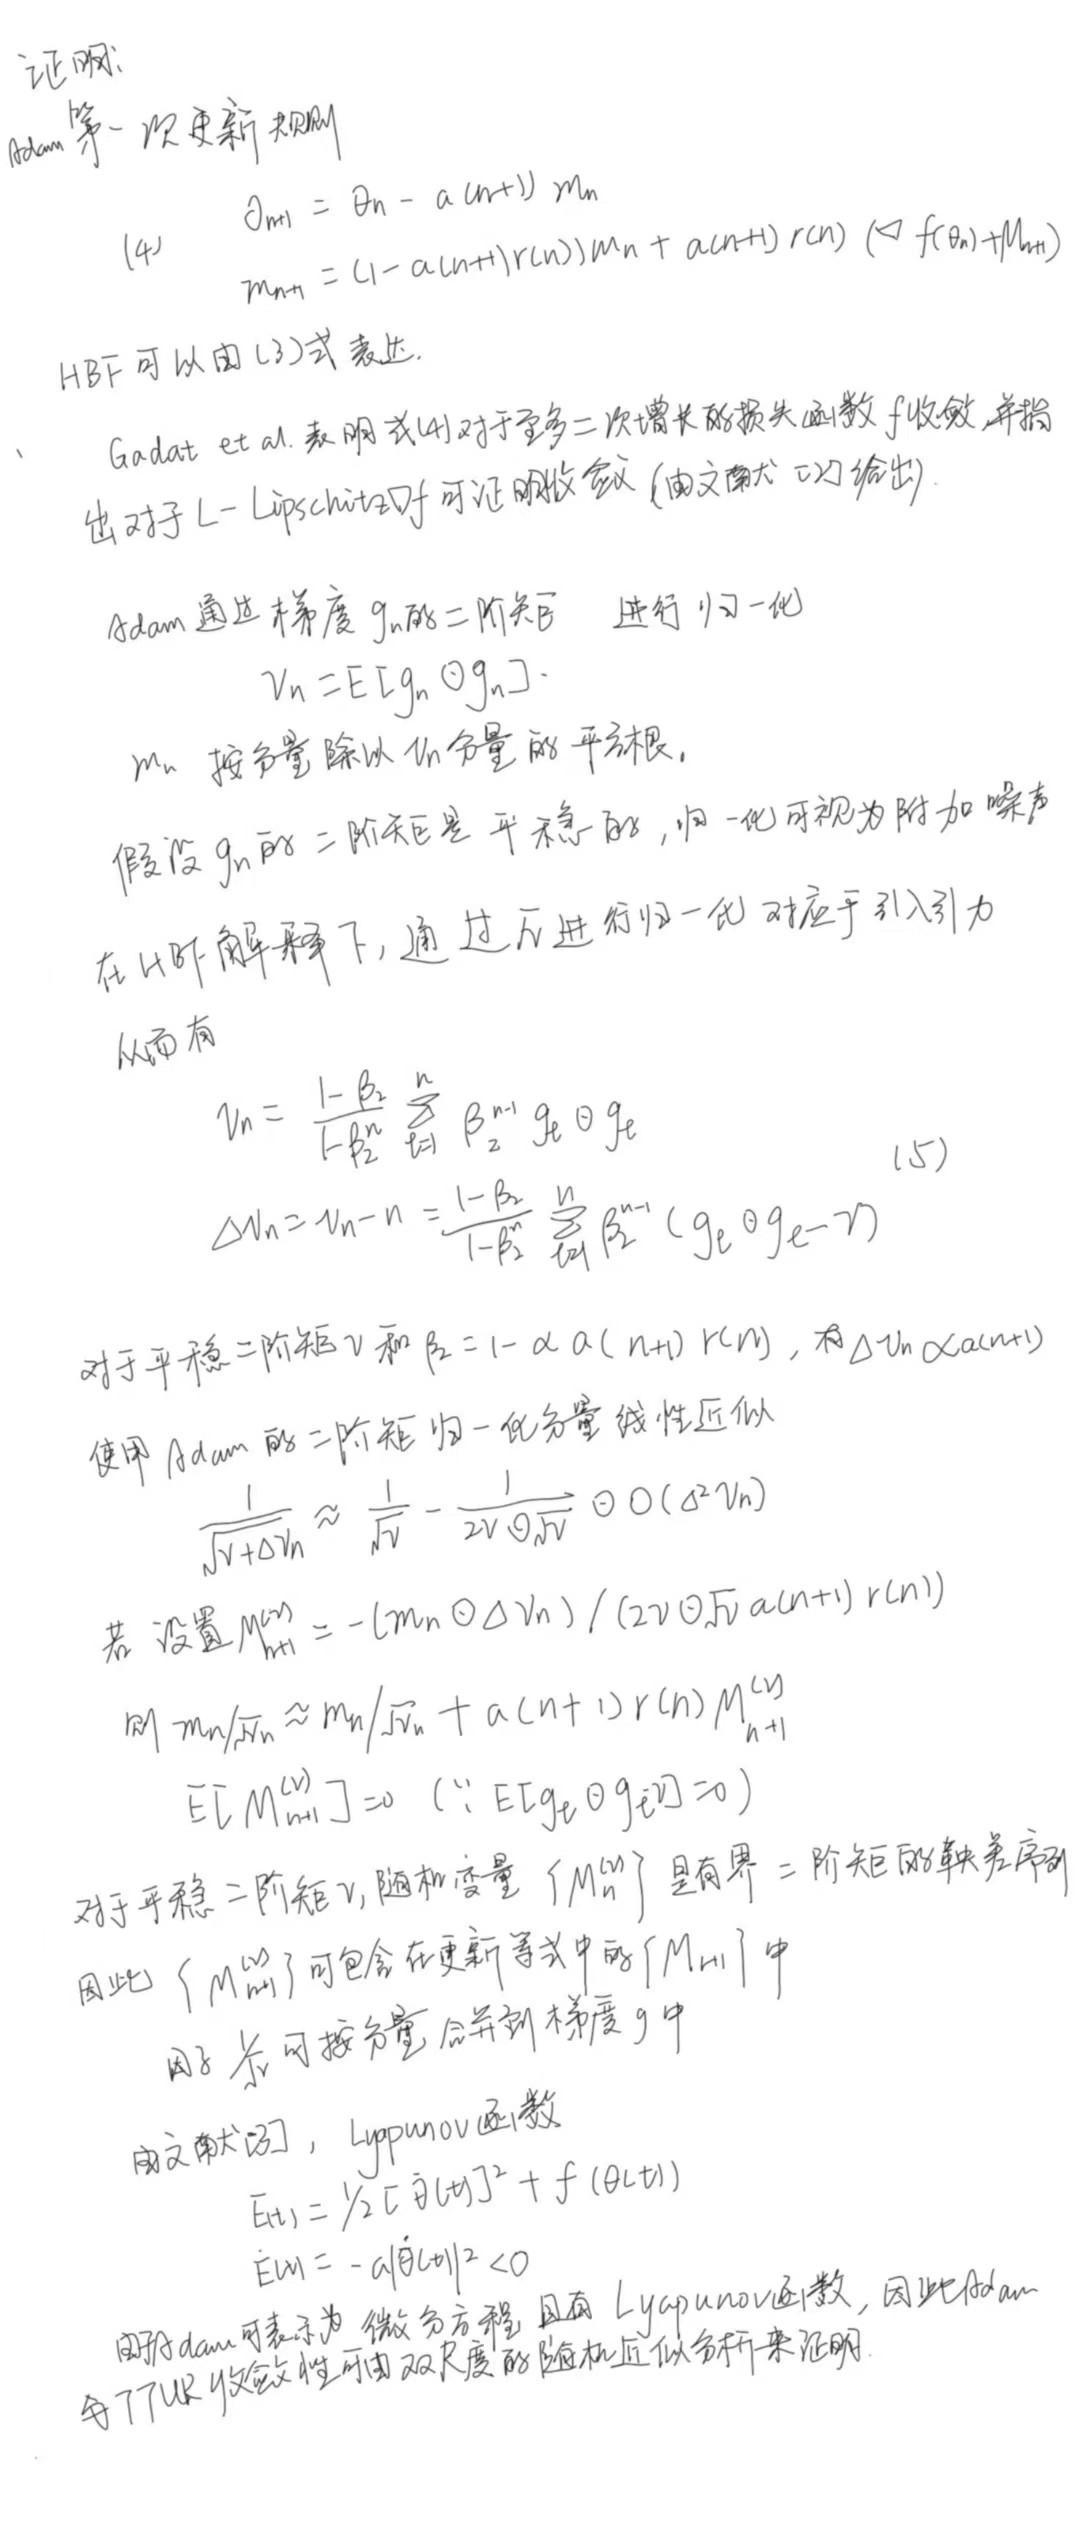 证明:
Adam 第一次更新规则
θn+1 = θn - a(n+1) mn
(4)
mn+1 = (1-a(n+1)r(n))mn + a(n+1)r(n) (∇f(θn)+Mn+1)
HBF 可以由(3)式表达.
Gadat et al. 表明式(4)对于至多二次增长的损失函数f收敛,并指
出对于L-Lipschitz∇f可证明收敛 (由文献[2]给出).
Adam 通过梯度gn的二阶矩 进行归一化
vn = E[gn⊙gn].
mn 按分量除以vn分量的平方根.
假设gn的二阶矩是平稳的,归一化可视为附加噪声
在HBF解释下,通过√v进行归一化对应于引入引力
从而有
vn = (1-β2)/(1-β2^n) Σ_{t=1}^{n} β2^{n-1} gt⊙gt
(5)
Δvn = vn-n = (1-β2)/(1-β2^n) Σ_{t=1}^{n} β2^{n-1} (gt⊙gt-v)
对于平稳二阶矩v和β2=1-αa(n+1)r(n),有Δvn∝a(n+1)
使用Adam的二阶矩归一化分量线性近似
1/√(v+Δvn) ≈ 1/√v - 1/(2v⊙√v) ⊙ O(Δ²vn)
若设置M_{n+1}^{(v)} = -(mn⊙Δvn)/(2v⊙√v a(n+1)r(n))
则 mn/√vn ≈ mn/√vn + a(n+1)r(n)M_{n+1}^{(v)}
E[M_{n+1}^{(v)}]=0 (∵E[gt⊙gt-v]=0)
对于平稳二阶矩v,随机变量{M_n^{(v)}}是有界二阶矩的鞅差序列
因此{M_{n+1}^{(v)}}可包含在更新等式中的{Mn+1}中
因子1/√v可按分量合并到梯度g中
由文献[3], Lyapunov函数
E(t) = 1/2[θ̇(t)]² + f(θ(t))
Ė(t) = -a|θ̇(t)|²<0
由于Adam可表示为微分方程且有Lyapunov函数,因此Adam
与TTUR收敛性可由双尺度的随机近似分析来证明.